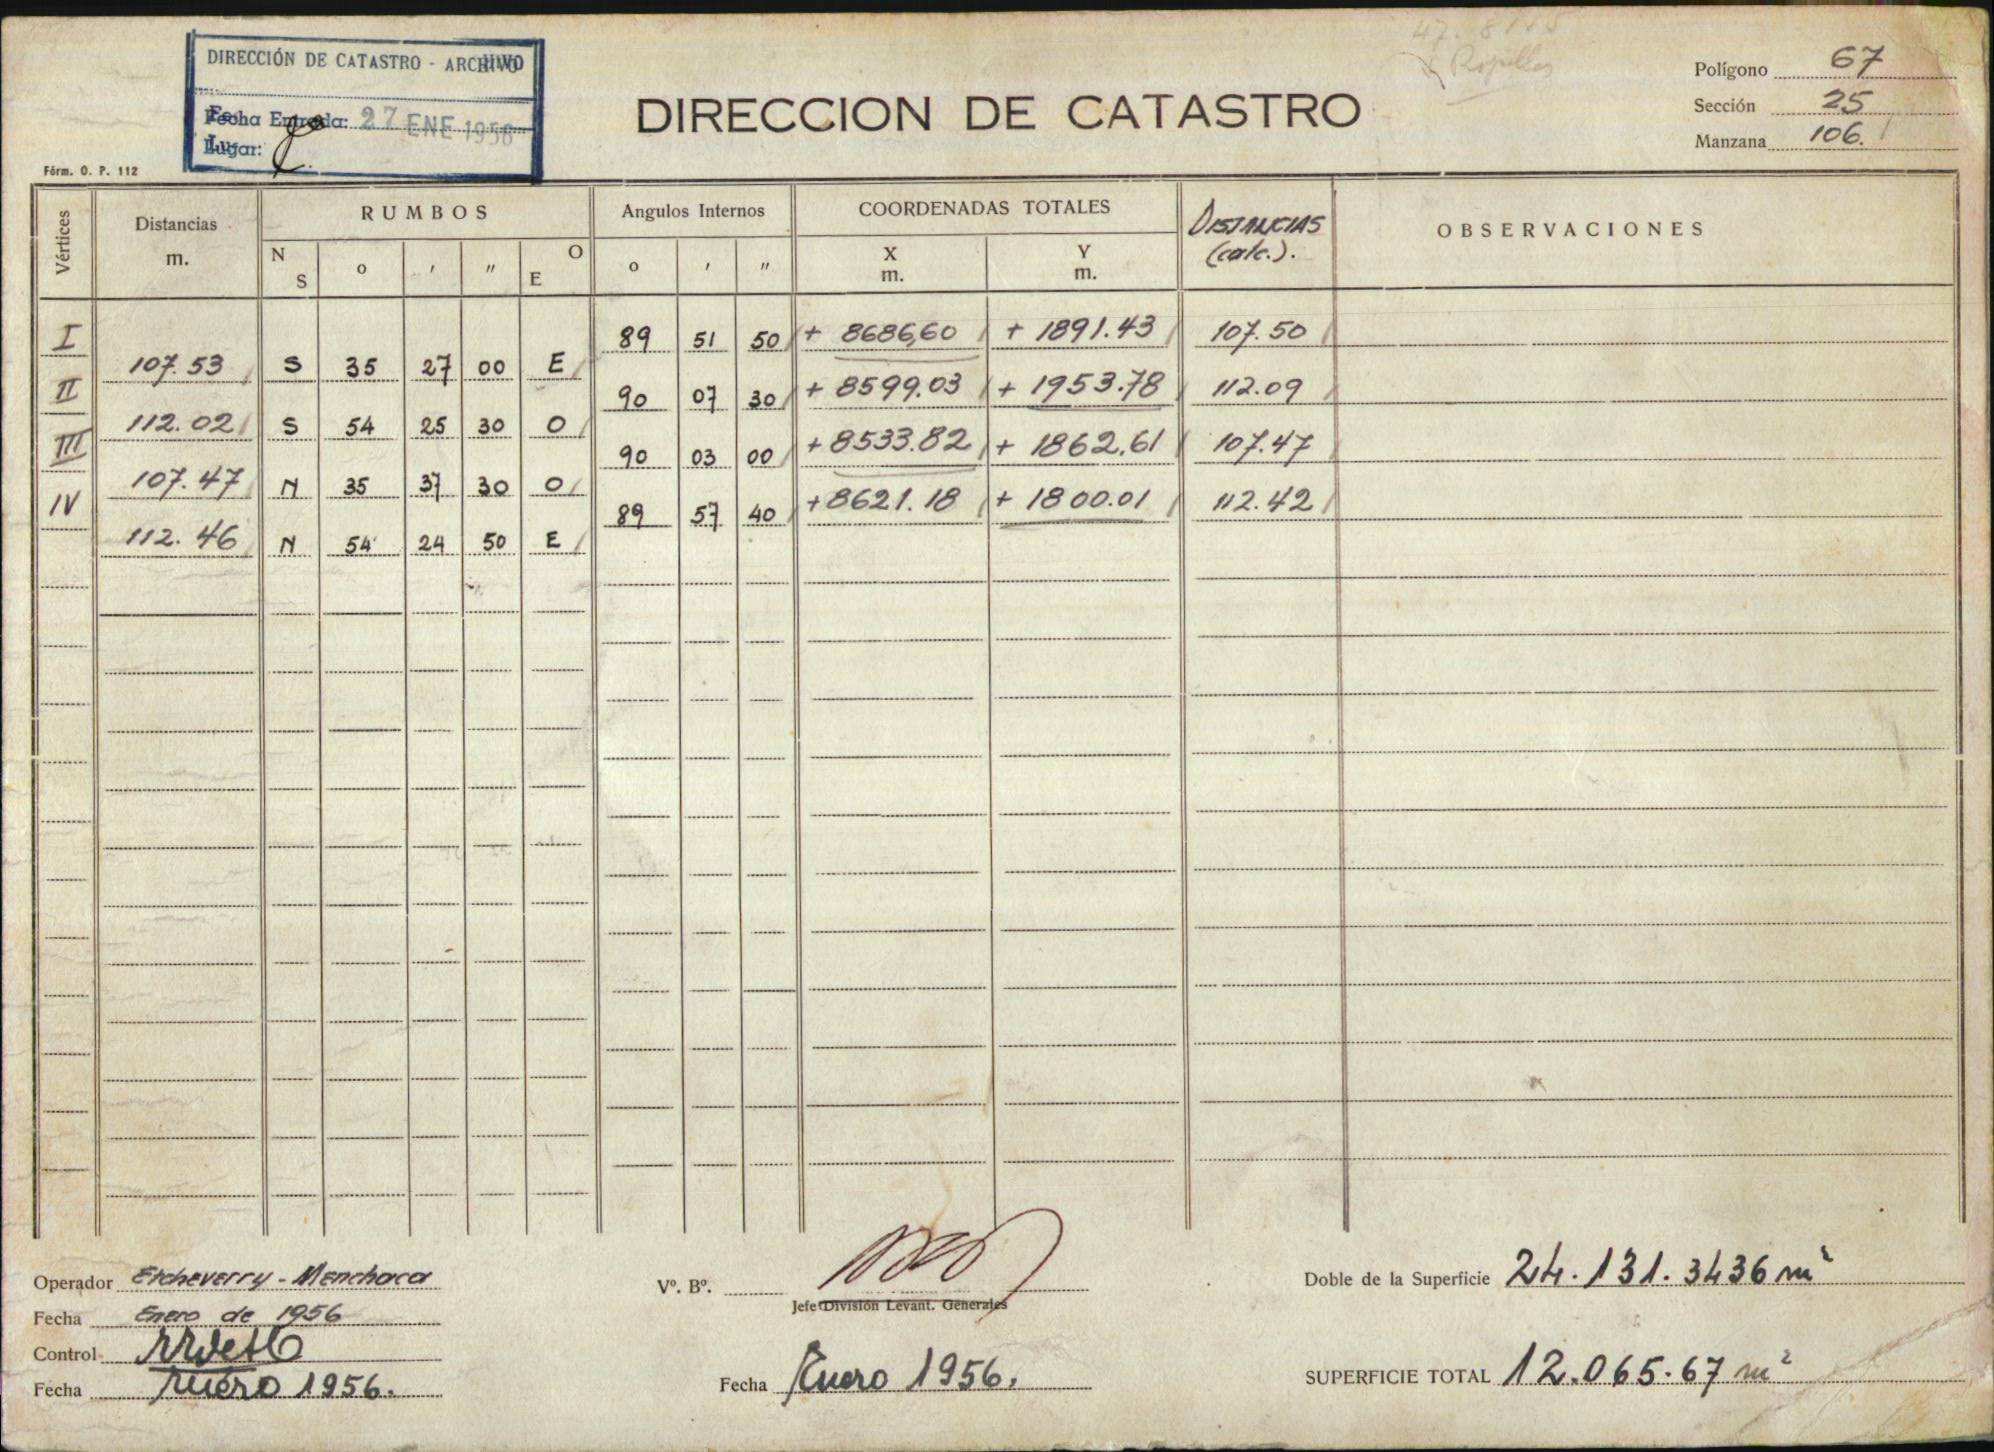 DIRECCIÓN DE CATASTRO - ARCHIVO
Fecha Entrada: 27 ENE 1956
Lugar:
DIRECCION DE CATASTRO
Polígono 67
Sección 25
Manzana 106.
Fórm. O. P. 112
Vértices Distancias m. RUMBOS Angulos Internos COORDENADAS TOTALES DISTANCIAS (calc.). OBSERVACIONES
N S o ' " O E o ' " X m. Y m.
I 89 51 50 + 8686,60 + 1891.43 107.50
107.53 S 35 27 00 E
II 90 07 30 + 8599.03 + 1953.78 112.09
112.02 S 54 25 30 O
III 90 03 00 + 8533.82 + 1862.61 107.47
107.47 N 35 37 30 O
IV 89 57 40 + 8621.18 + 1800.01 112.42
112.46 N 54 24 50 E
Operador Etcheverry - Menchaca
Fecha Enero de 1956
Control
Fecha Enero 1956.
Vº. Bº.
Jefe División Levant. Generales
Fecha Enero 1956.
Doble de la Superficie 24.131.3436 m²
SUPERFICIE TOTAL 12.065.67 m²